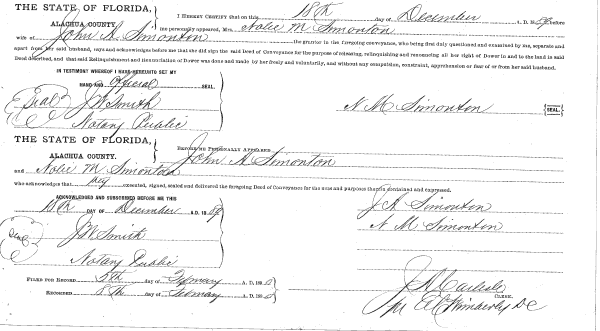 THE STATE OF FLORIDA,
ALACHUA COUNTY.
I HEREBY CERTIFY that on this 18th day of December A. D. 18 before
me personally appeared, Mrs. Nolie M Simonton
wife of John A. Simonton the grantor in the foregoing conveyance, who being first duly questioned and examined by me, separate and
apart from her said husband, says and acknowledges before me that she did sign the said Deed of Conveyance for the purpose of releasing, relinquishing and renouncing all her right of Dower in and to the land in said
Deed described, and that said Relinquishment and Renunciation of Dower was done and made by her freely and voluntarily, and without any compulsion, constraint, apprehension or fear of or from her said husband.
IN TESTIMONY WHEREOF I HAVE HEREUNTO SET MY
HAND AND Official SEAL.
Seal J W Smith
Notary Public
N M Simonton {SEAL}
THE STATE OF FLORIDA,
ALACHUA COUNTY.
BEFORE ME PERSONALLY APPEARED John A Simonton
and Nolie M Simonton
who acknowledges that they executed, signed, sealed and delivered the foregoing Deed of Conveyance for the uses and purposes therein contained and expressed.
ACKNOWLEDGED AND SUBSCRIBED BEFORE ME THIS
18th DAY OF December A.D. 18
J A Simonton
N M Simonton
Seal J W Smith
Notary Public
FILED FOR RECORD 5th day of February A. D. 18
RECORDED 8th day of February A. D. 18
J A Carlisle
CLERK.
per E C Wimberly D C